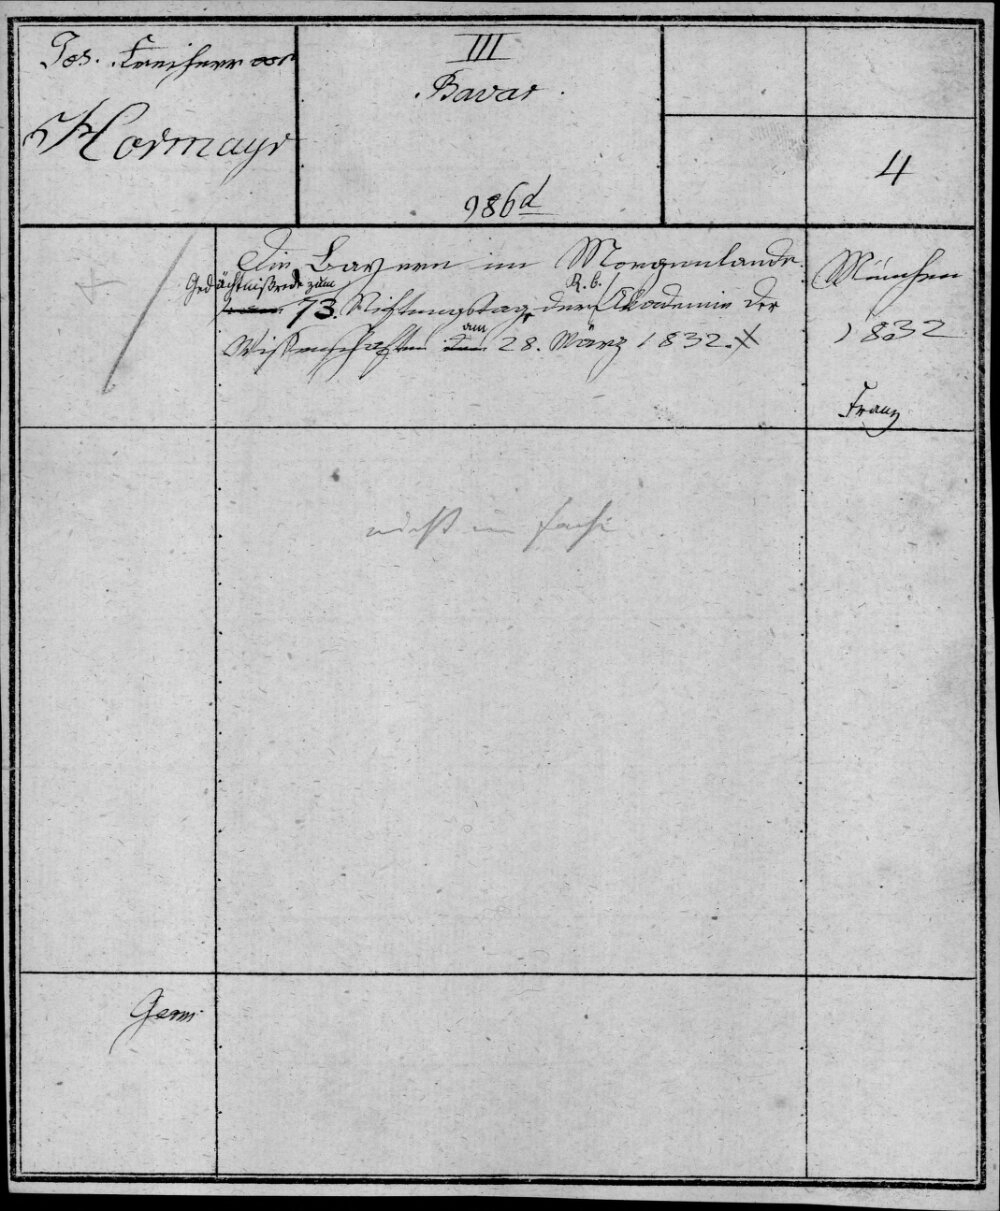 Jos. Freiherr von
Hormayr
III
Bavar.
986d
4
Die Bayern im Morgenlande.
Gedächtnißrede zum
73. Stiftungstag der K. b. Akademie der
Wissenschaften am 28. März 1832.
München
1832
Franz
nicht im Fache
Germ.